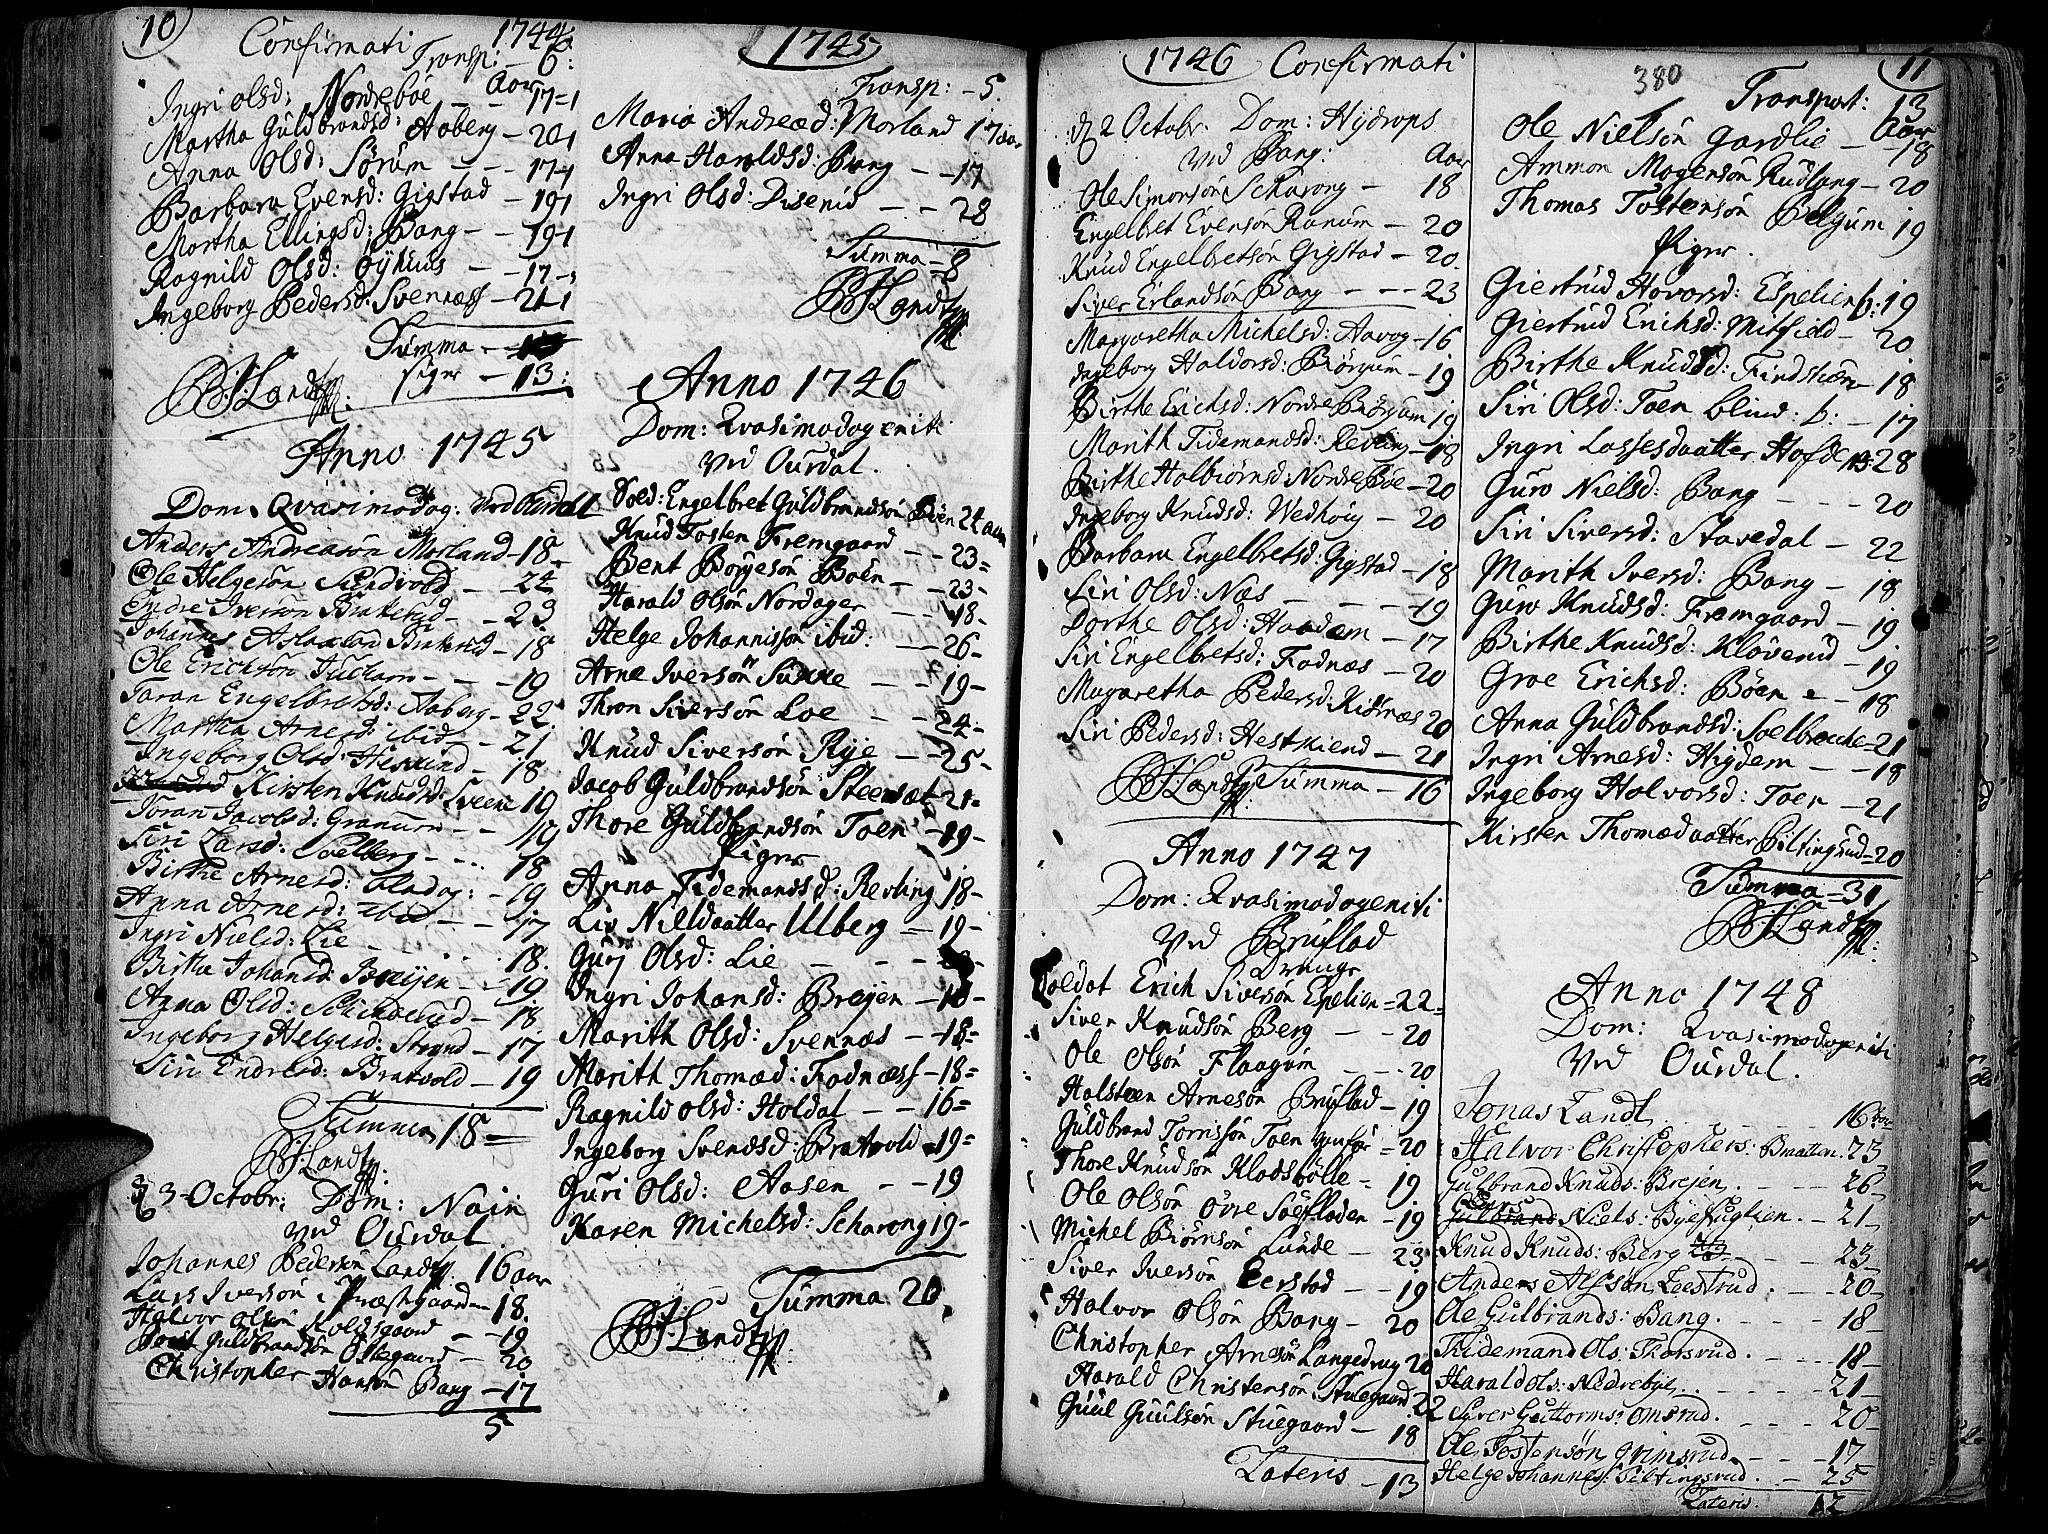 10
Confirmati 1744
Transp: - 6:
Aar
Ingri Olsd: Nordeböe - - 17
Martha Guldbrandsd: Aaberg - 20
Anna Olsd: Sørum - - - 17
Barbara Evensd: Gigstad - 19
Martha Ellingsd: Bang - - 19
Ragnild Olsd: - - 17
Ingeborg Pedersd: Svennæss - 21
Summa -
piger - 13:
Landt
Anno 1745
Dom: Qvasimodog: ved
Anders Andreasön Morland - 18 -
Ole Helgesön Sundvold - 24
Endre Iversön - - 23
Johannes - 18
Ole Erichsön - - - 19
Jaran Engelbretsd: Aaberg - 22
Martha Arnesd: ibid - 21
Ingeborg Olsd: - 18
Kirsten Knudsd: Sveen 19
Joran Jacobsd: Granum - - 19
Siri Larsd: Solberg - - - 18
Birthe Arnesd: - 19
Anna Arnesd: ibid - - 17
Ingri Nielsd: Lie - - - 18.
Birthe Johansd: Breijen - - 19
Anna Olsd: - 18
Ingeborg Helgesd: Strand - 17
Siri Endresd: Bratvold - 19
Summa 18 =
Landt
d 3 Octobr: Dom: Nain
ved Ourdal.
Johannes Pedersön Landt 16 aar
Lars Iversön i Præstegaarden 18.
Halvor Olsön - - 19
Guldbrandsön - 20
Christopher Hansön Bang - 17
5
1745
Transp: - 5.
Maria Andreæd: Morland 17 aar
Anna Haraldsd: Bang - - 17
Ingri Olsd: Disenid - - 28
Summa - 8
Landt
Anno 1746
Dom: Qvasimodogeniti
ved Ourdal.
Sold: Engelbret Guldbrandsön Böen 24 aar
Knud Tosten Fremgaard - - 23 =
Bent Börgesön Böen - - 23 -
Harald Olsön Nordager - - 18 -
Helge Johannissön ibid: - 26 -
Arne Iversön Sukke - - 19 -
Thron Siversön Loe - - 24 -
Knud Siversön Rye - - 25 -
Jacob Guldbrandsön Steensæt 21 =
Thore Guldbrandsön Toen - 19 -
Piger
Anna Tidemandsd: Revling 18 -
Liv Nielsdaatter Ulberg - 19 -
Guri Olsd: Lie - - -
Ingri Johansd: Brejen - 18 -
Marith Olsd: Svennæs - 18 =
Marith Thomæd: Fodnæss - 18 =
Ragnild Olsd: Holdal - - 16 =
Ingeborg Svendsd: Bratvold = 19 =
Guri Olsd: Aasen - - 19
Karen Michelsd: Scharong 19 -
Summa 20.
Landt
1746 Confirmati
d 2 Octobr. Dom: Hydrops
ved Bang: Aar
Ole Simonsön Scharong - 18
Engelbret Evensön Ranum - 20
Knud Engelbretsön Gigstad - 20.
Siver Erlandsön Bang - - - 23
Margaretha Michelsd: Aavog - 16
Ingeborg Haldorsd: Börgum - 19
Birthe Erichsd: Nordre Börgum 19
Marith Tidemandsd: Revling - 18
Birthe Halbiörnsd Nordre Böe - 20
Ingeborg Knudsd: Wedhöig - 20
Barbara Engelbretsd: Gigstad - 18
Siri Olsd: Næs - - - 19
Dorthe Olsd: Haadem - 17
Siri Engelbretsd: Fodnæs - 20
Magaretha Pedersd: Kidnæs 20
Siri Pedersd: Hestekiend - 21
Landt Summa - 16
Anno 1747
Dom: Qvasimodogeniti
ved Bruflad
Drenge
Soldat Erich Siversön Espelien = 22 =
Siver Knudsön Berg - - 20
Ole Olsön Flaagum - - 20
Halsteen Arnesön Bruflad - 19
Guldbrand Torrissön Toen = 20
Thore Knudsön Klodsbölle - 19
Ole Olsön Övre Söefladen - 19
Michel Biörnsön Lunde - 23
Siver Iversön Eerstad - 19
Halvor Olsön Bang - 20
Christopher Arnesön Langedrag 20
Harald Christensön Stuegaard 22
Guul Guulsön Stuegaard - 18
Lateris - 13
380
11
Transport: 13
Aar
Ole Nielsön Gardlie - 18
Ammon Mogensön Rudlang - 20
Thomas Tostensön Belgum 19
Piger.
Giertrud Hovorsd: Espelien b: 19
Giertrud Erichsd: Mitfield - 20
Birthe Knudsd: Findskien 18
Siri Olsd: Toen blind: b: - 17
Ingri Lassesdaatter Hofde 28
Guro Nielsd: Bang - - - 20
Siri Siversd: Stavedal - 22
Marith Iversd: Bang - 18
Guro Knudsd: Fremgaard - 19.
Birthe Knudsd: Kloverud - 19
Groe Erichsd: Böen - - 18
Anna Guldbrandsd: Soelbrecke = 21
Ingri Arnesd: Higdem - - 18
Ingeborg Halvorsd: Toen - 21
Kirsten Thomædaatter Piltingsrud = 20
Summa = 31
Landt
Anno 1748
Dom: Qvasimodogeniti
Ved Ourdal.
Jonas Landt 16 aar
Halvor Christophers: Braatten. 23
Gulbrand Knuds: Brejen. - - - 26 -
Niels: Byefuglien. - 21 -
Knud Knuds: Berg - - 23 -
Anders Alfsön Leestrud. - - 20 -
Ole Gulbrands: Bang. - - - 18 -
Thidemand Ols: Thorsrud. - - 18 -
Harald Ols: Nedrebye. - - - 21 -
Syver Guttorms: Omsrud. - - 20
Ole Tostensön Grimsrud. - - 17
Helge Johannes: Piltingsrud. - - 25
Lateris. 12